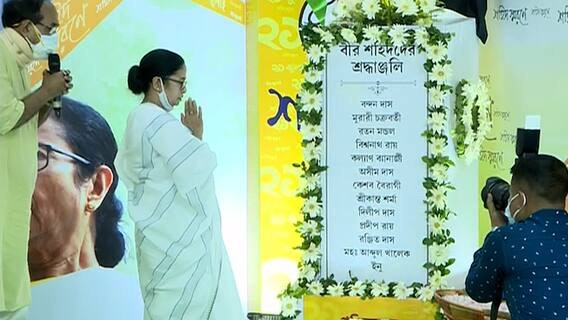 বীর শহিদদের
শ্রদ্ধাঞ্জলি
বন্দন দাস
মুরারী চক্রবর্তী
রতন মন্ডল
বিশ্বনাথ রায়
কল্যাণ ব্যানার্জী
অসীম দাস
কেশব বৈরাগী
শ্রীকান্ত শর্মা
দিলীপ দাস
প্রদীপ রায়
রঞ্জিত দাস
মহঃ আব্দুল খালেক
ইনু